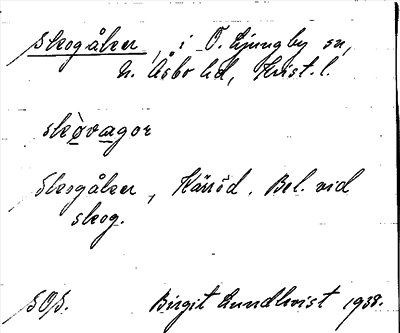 Skogåker, i Ö. Ljungby sn,
N. Åsbo hd, Krist. l.
skòvagor
Skogåker, Kärröd. Bel. vid
skog.
SOS.
Birgit Lundkvist 1938.